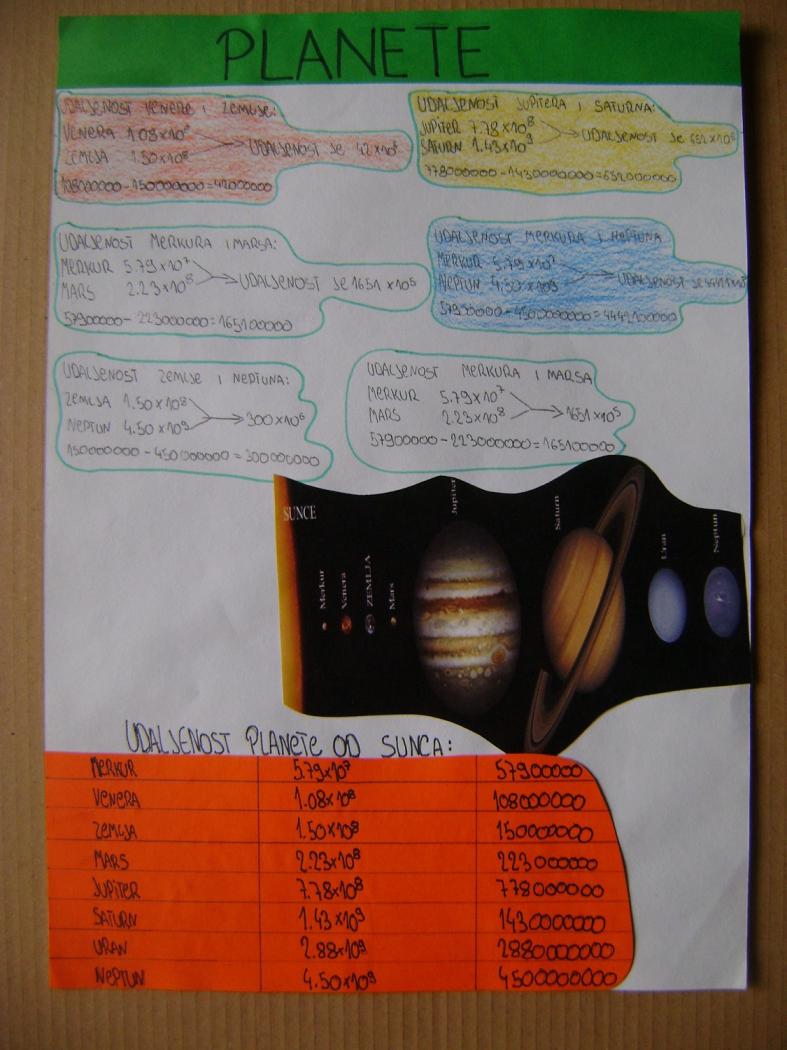 PLANETE
UDALJENOST VENERE I ZEMLJE:
VENERA 1.08×10⁸
UDALJENOST JE 42×10⁶
ZEMLJA 1.50×10⁸
108000000-150000000=42000000
UDALJENOST JUPITERA I SATURNA:
JUPITER 7.78×10⁸
UDALJENOST JE 652×10⁶
SATURN 1.43×10⁹
778000000-1430000000=652000000
UDALJENOST MERKURA I MARSA:
MERKUR 5.79×10⁷
UDALJENOST JE 1651×10⁵
MARS 2.23×10⁸
57900000-223000000=165100000
UDALJENOST MERKURA I NEPTUNA
MERKUR 5.79×10⁷
UDALJENOST JE
NEPTUN 4.50×10⁹
57900000-4500000000=4442100000
UDALJENOST ZEMLJE I NEPTUNA:
ZEMLJA 1.50×10⁸
300×10⁶
NEPTUN 4.50×10⁹
150000000-450000000=300000000
UDALJENOST MERKURA I MARSA
MERKUR 5.79×10⁷
1651×10⁵
MARS 2.23×10⁸
57900000-223000000=165100000
SUNCE
Merkur
Venera
ZEMLJA
Mars
Jupiter
Saturn
Uran
Neptun
UDALJENOST PLANETE OD SUNCA:
MERKUR 5.79×10⁷ 57900000
VENERA 1.08×10⁸ 108000000
ZEMLJA 1.50×10⁸ 150000000
MARS 2.23×10⁸ 223000000
JUPITER 7.78×10⁸ 778000000
SATURN 1.43×10⁹ 1430000000
URAN 2.88×10⁹ 2880000000
NEPTUN 4.50×10⁹ 4500000000